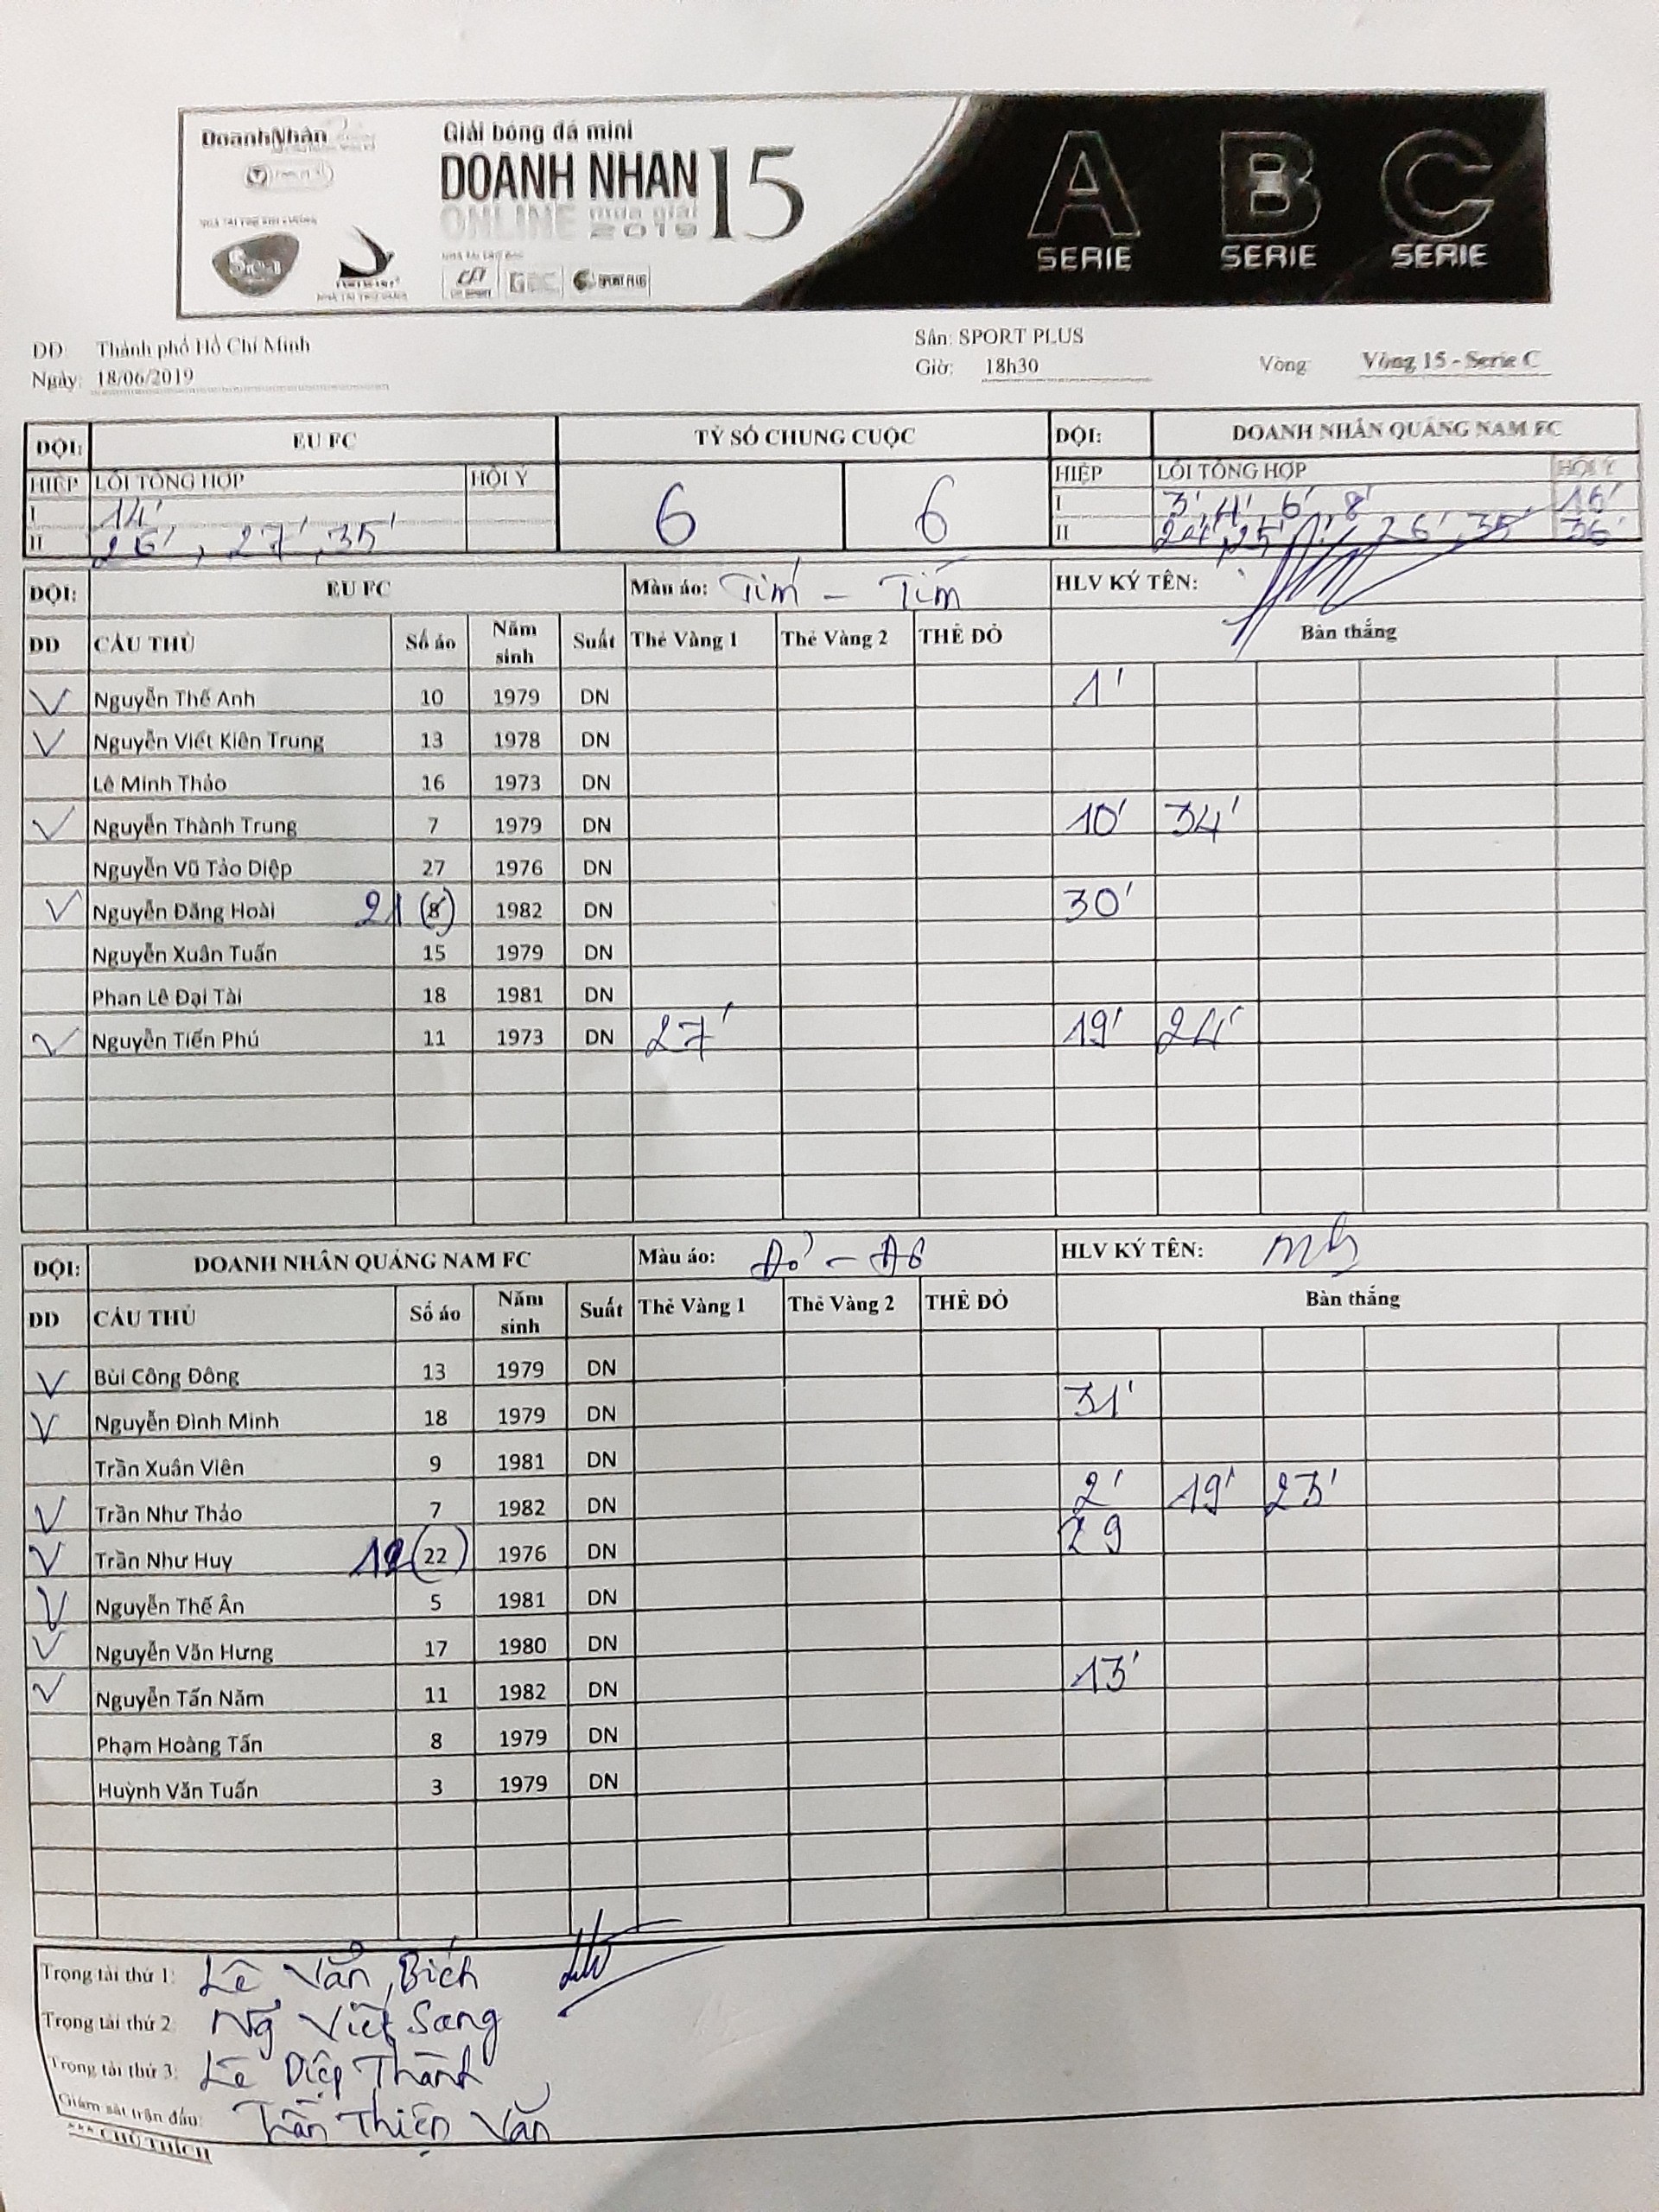 DoanhNhân
Giải bóng đá mini
DOANH NHAN 15
ONLINE mùa giải 2019
A B C
SERIE SERIE SERIE
SPORT PLUS
DD: Thành phố Hồ Chí Minh Sân: SPORT PLUS
Ngày: 18/06/2019 Giờ: 18h30 Vòng: Vòng 15 - Serie C
ĐỘI: EU FC TỶ SỐ CHUNG CUỘC ĐỘI: DOANH NHÂN QUẢNG NAM FC
HIỆP LỖI TỔNG HỢP HỘI Ý 6 6 HIỆP LỖI TỔNG HỢP HỘI Ý
I 14' I 3', 4' 6', 8' 16'
II 26', 27', 35' II 24', 25' 26', 35' 36'
ĐỘI: EU FC Màu áo: Tím - Tím HLV KÝ TÊN:
DD CẦU THỦ Số áo Năm sinh Suất Thẻ Vàng 1 Thẻ Vàng 2 THẺ ĐỎ Bàn thắng
V Nguyễn Thế Anh 10 1979 DN 1'
V Nguyễn Viết Kiên Trung 13 1978 DN
Lê Minh Thảo 16 1973 DN
V Nguyễn Thành Trung 7 1979 DN 10' 34'
Nguyễn Vũ Tảo Diệp 27 1976 DN
V Nguyễn Đăng Hoài 21 (8) 1982 DN 30'
Nguyễn Xuân Tuấn 15 1979 DN
Phan Lê Đại Tài 18 1981 DN
V Nguyễn Tiến Phú 11 1973 DN 27' 19' 24'
ĐỘI: DOANH NHÂN QUẢNG NAM FC Màu áo: Đỏ - Đỏ HLV KÝ TÊN:
DD CẦU THỦ Số áo Năm sinh Suất Thẻ Vàng 1 Thẻ Vàng 2 THẺ ĐỎ Bàn thắng
V Bùi Công Đông 13 1979 DN
V Nguyễn Đình Minh 18 1979 DN 31'
Trần Xuân Viên 9 1981 DN
V Trần Như Thảo 7 1982 DN 2' 19' 23'
V Trần Như Huy 12 (22) 1976 DN 29
V Nguyễn Thế Ân 5 1981 DN
V Nguyễn Văn Hưng 17 1980 DN
V Nguyễn Tấn Năm 11 1982 DN 13'
Phạm Hoàng Tấn 8 1979 DN
Huỳnh Văn Tuấn 3 1979 DN
Trọng tài thứ 1: Lê Văn Bích
Trọng tài thứ 2: Ng Viết Sang
Trọng tài thứ 3: Lê Diệp Thành
Giám sát trận đấu: Trần Thiện Văn
*** CHÚ THÍCH